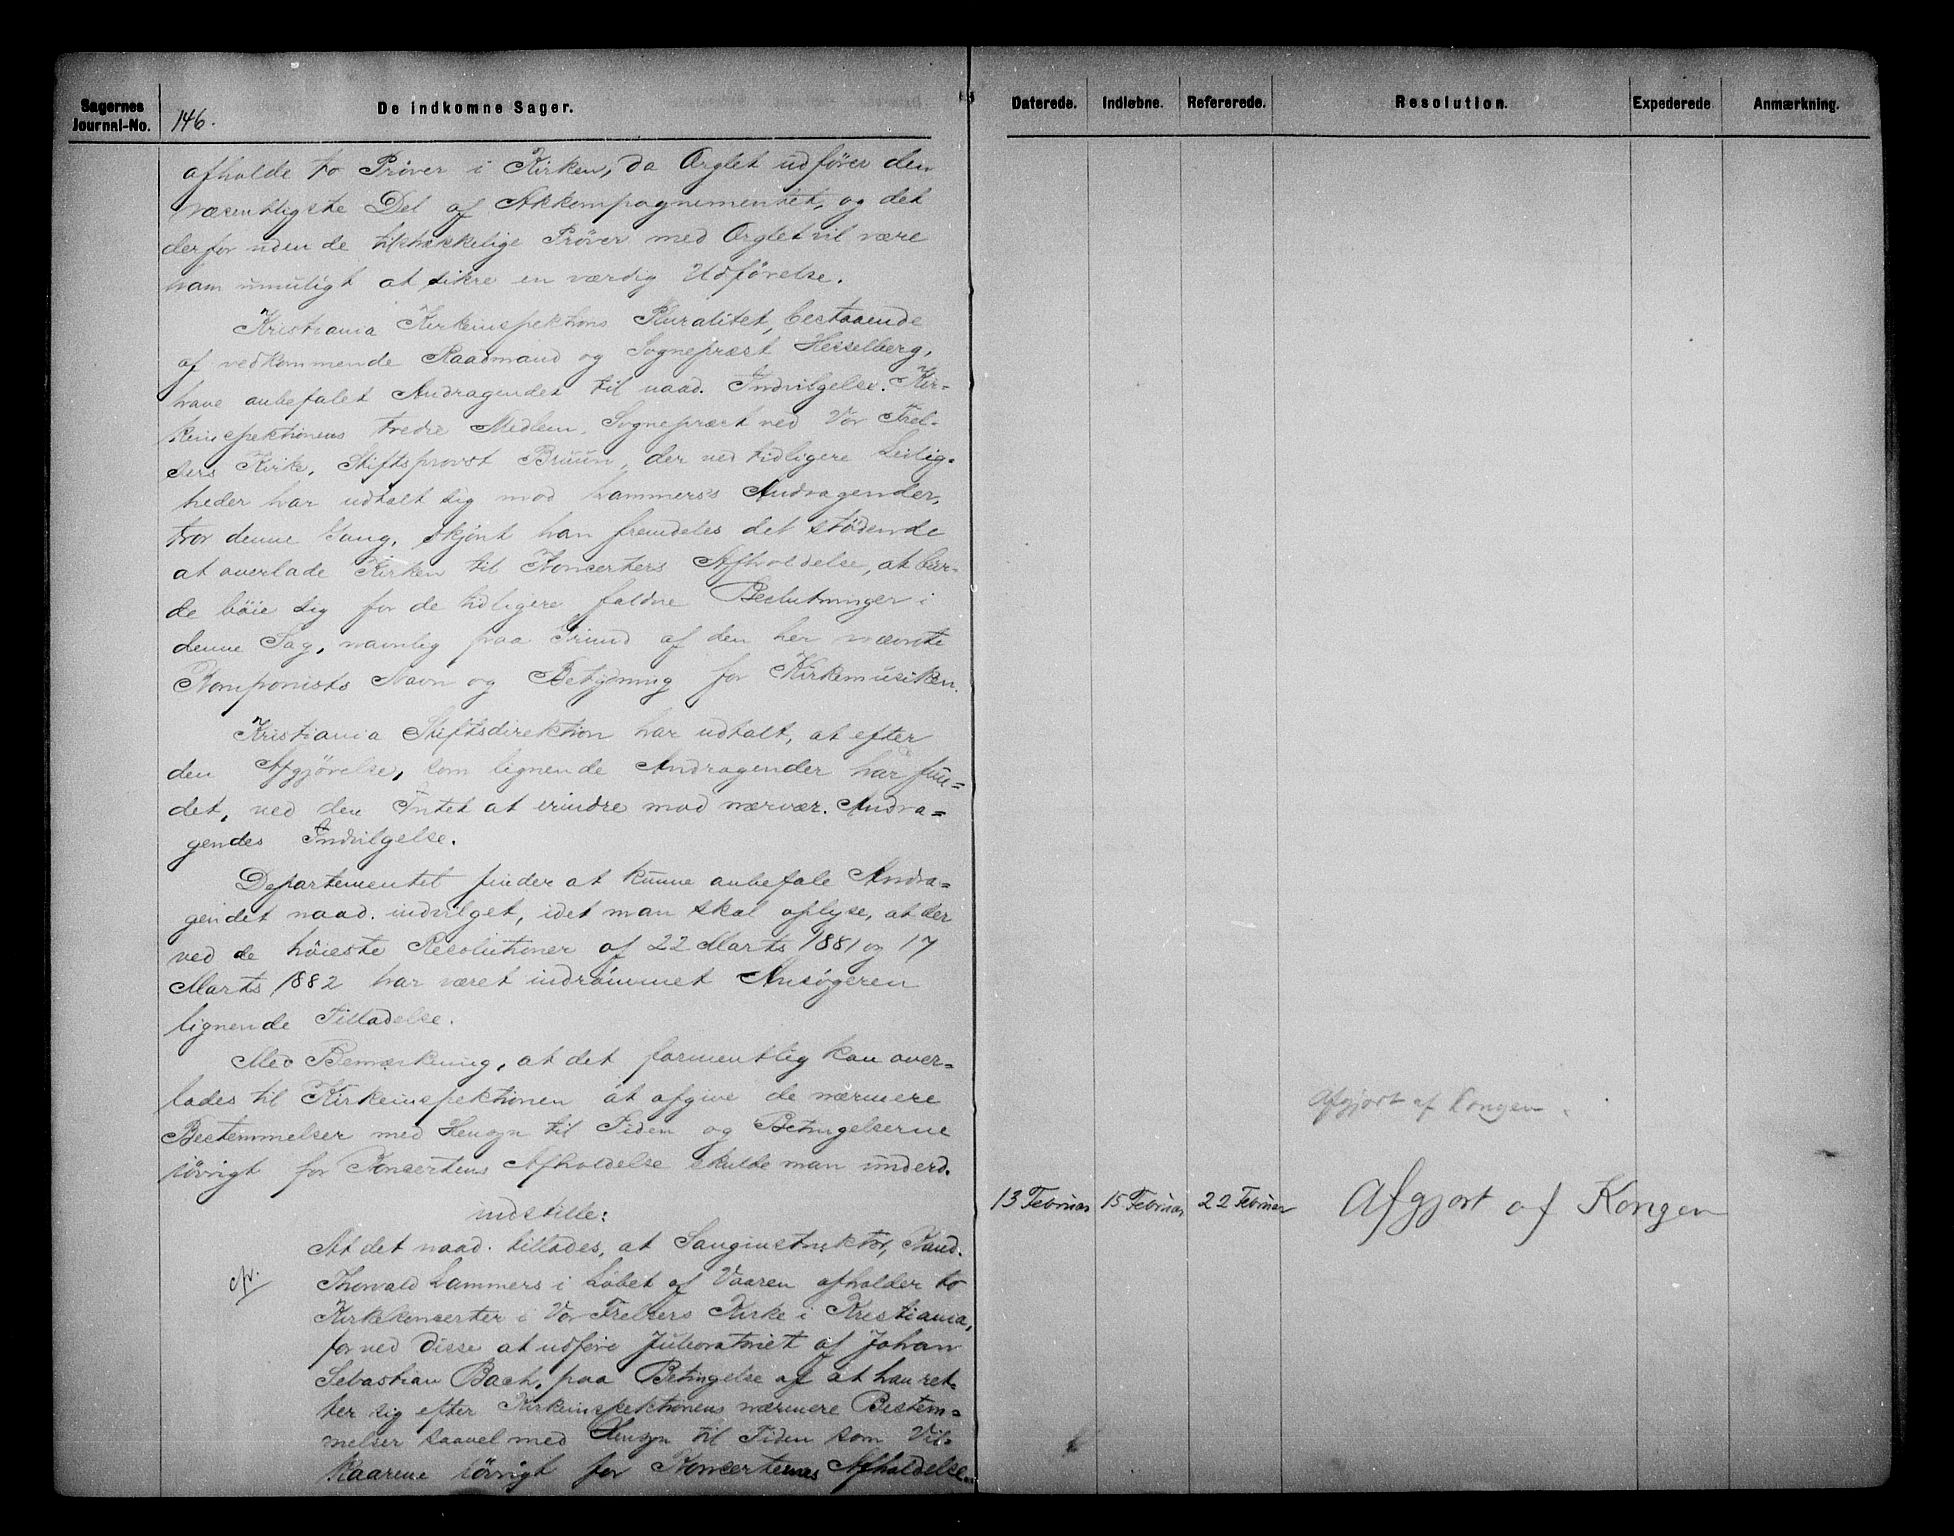 Sagernes
Journal-No.
146.
De indkomne Sager.
afholde to Prøver i Kirken, da Orglet udfører den
væsentligste Del af Akkompagnementet, og det
derfor uden de tilstrækkelige Prøver med Orglet vil være
ham umuligt at sikre en værdig Udførelse.
Kristiania Kirkeinspektions Pluralitet, bestaaende
af vedkommende Raadmand og Sognepræst Hesselberg,
have anbefalet Andragendet til naad. Indvilgelse. Kir-
keinspektionens tredie Medlem, Sognepræst ved Vor Frel-
sers Kirke, Stiftsprovst Bruun, der ved tidligere Leilig-
heder har udtalt sig mod Lammers's Andragender,
tror denne Gang, skjønt han fremdeles det stødende
at overlade Kirken til Koncerters Afholdelse, at bur-
de bøie sig for de tidligere faldne Beslutninger i
denne Sag, navnlig paa Grund af den her nævnte
Komponists Navn og Betydning for Kirkemusiken.
Kristiania Stiftsdirektion har udtalt, at efter
den Afgjørelse, som lignende Andragender har fun-
det, ved den Intet at erindre mod nærvær. Andra-
gendes Indvilgelse.
Departementet finder at kunne anbefale Andra-
gendet naad. indvilget, idet man skal oplyse, at der
ved de høieste Resolutioner af 22 Marts 1881 og 17
Marts 1882 har været indrømmet Ansøgeren
lignende Tilladelse.
Med Bemærkning, at det formentlig kan over-
lades til Kirkeinspektionen at afgive de nærmere
Bestemmelser med Hensyn til Tiden og Betingelserne
iøvrigt for Koncertens Afholdelse skulde man underd.
indstille:
At det naad. tillades, at Sanginstruktør, Kand.
Thorvald Lammers i Løbet af Vaaren afholder to
Kirkekoncerter i Vor Frelsers Kirke i Kristiania,
for ved disse at udføre Juleoratoriet af Johan
Sebastian Bach, paa Betingelse af at han ret-
ter sig efter Kirkeinspektionens nærmere Bestem-
melser saavel med Hensyn til Tiden som Vil-
kaarene iøvrigt for Koncerternes Afholdelse.
Daterede.
Indløbne.
Refererede.
Resolution.
Expederede
Anmærkning.
Afgjort af Kongen.
13 Februar 15 Februar 22 Februar Afgjort af Kongen